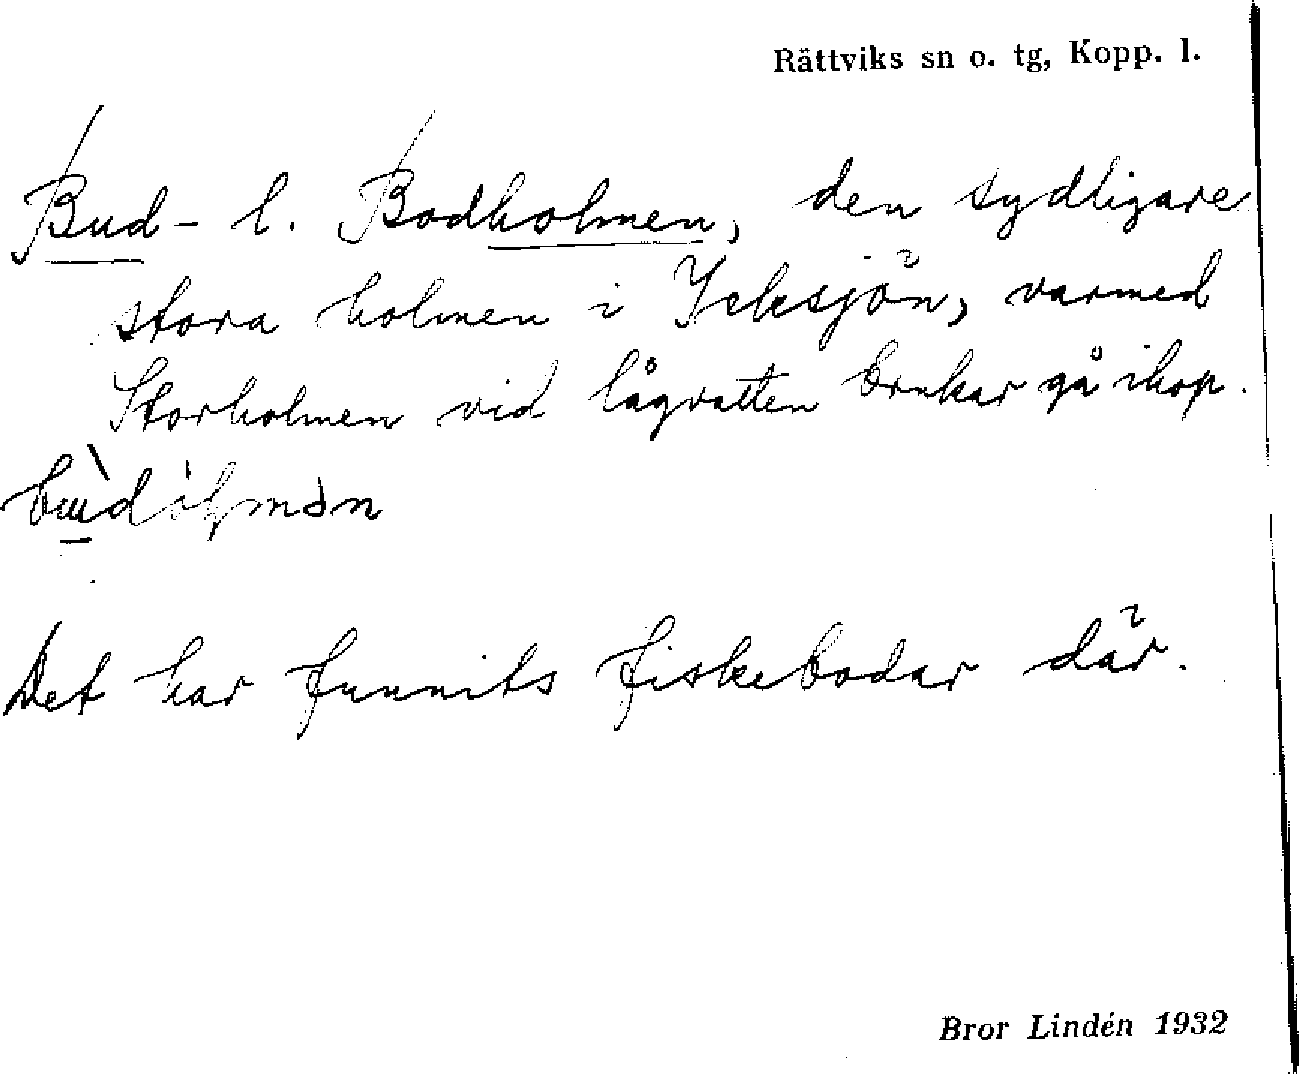 Rättviks sn o. tg, Kopp. l.
Bud- l. Bodholmen, den sydligare
stora holmen i Icksjön, varmed
Storholmen vid lågvatten brukar gå ihop.
Det har funnits fiskebodar där.
Bror Lindén 1932